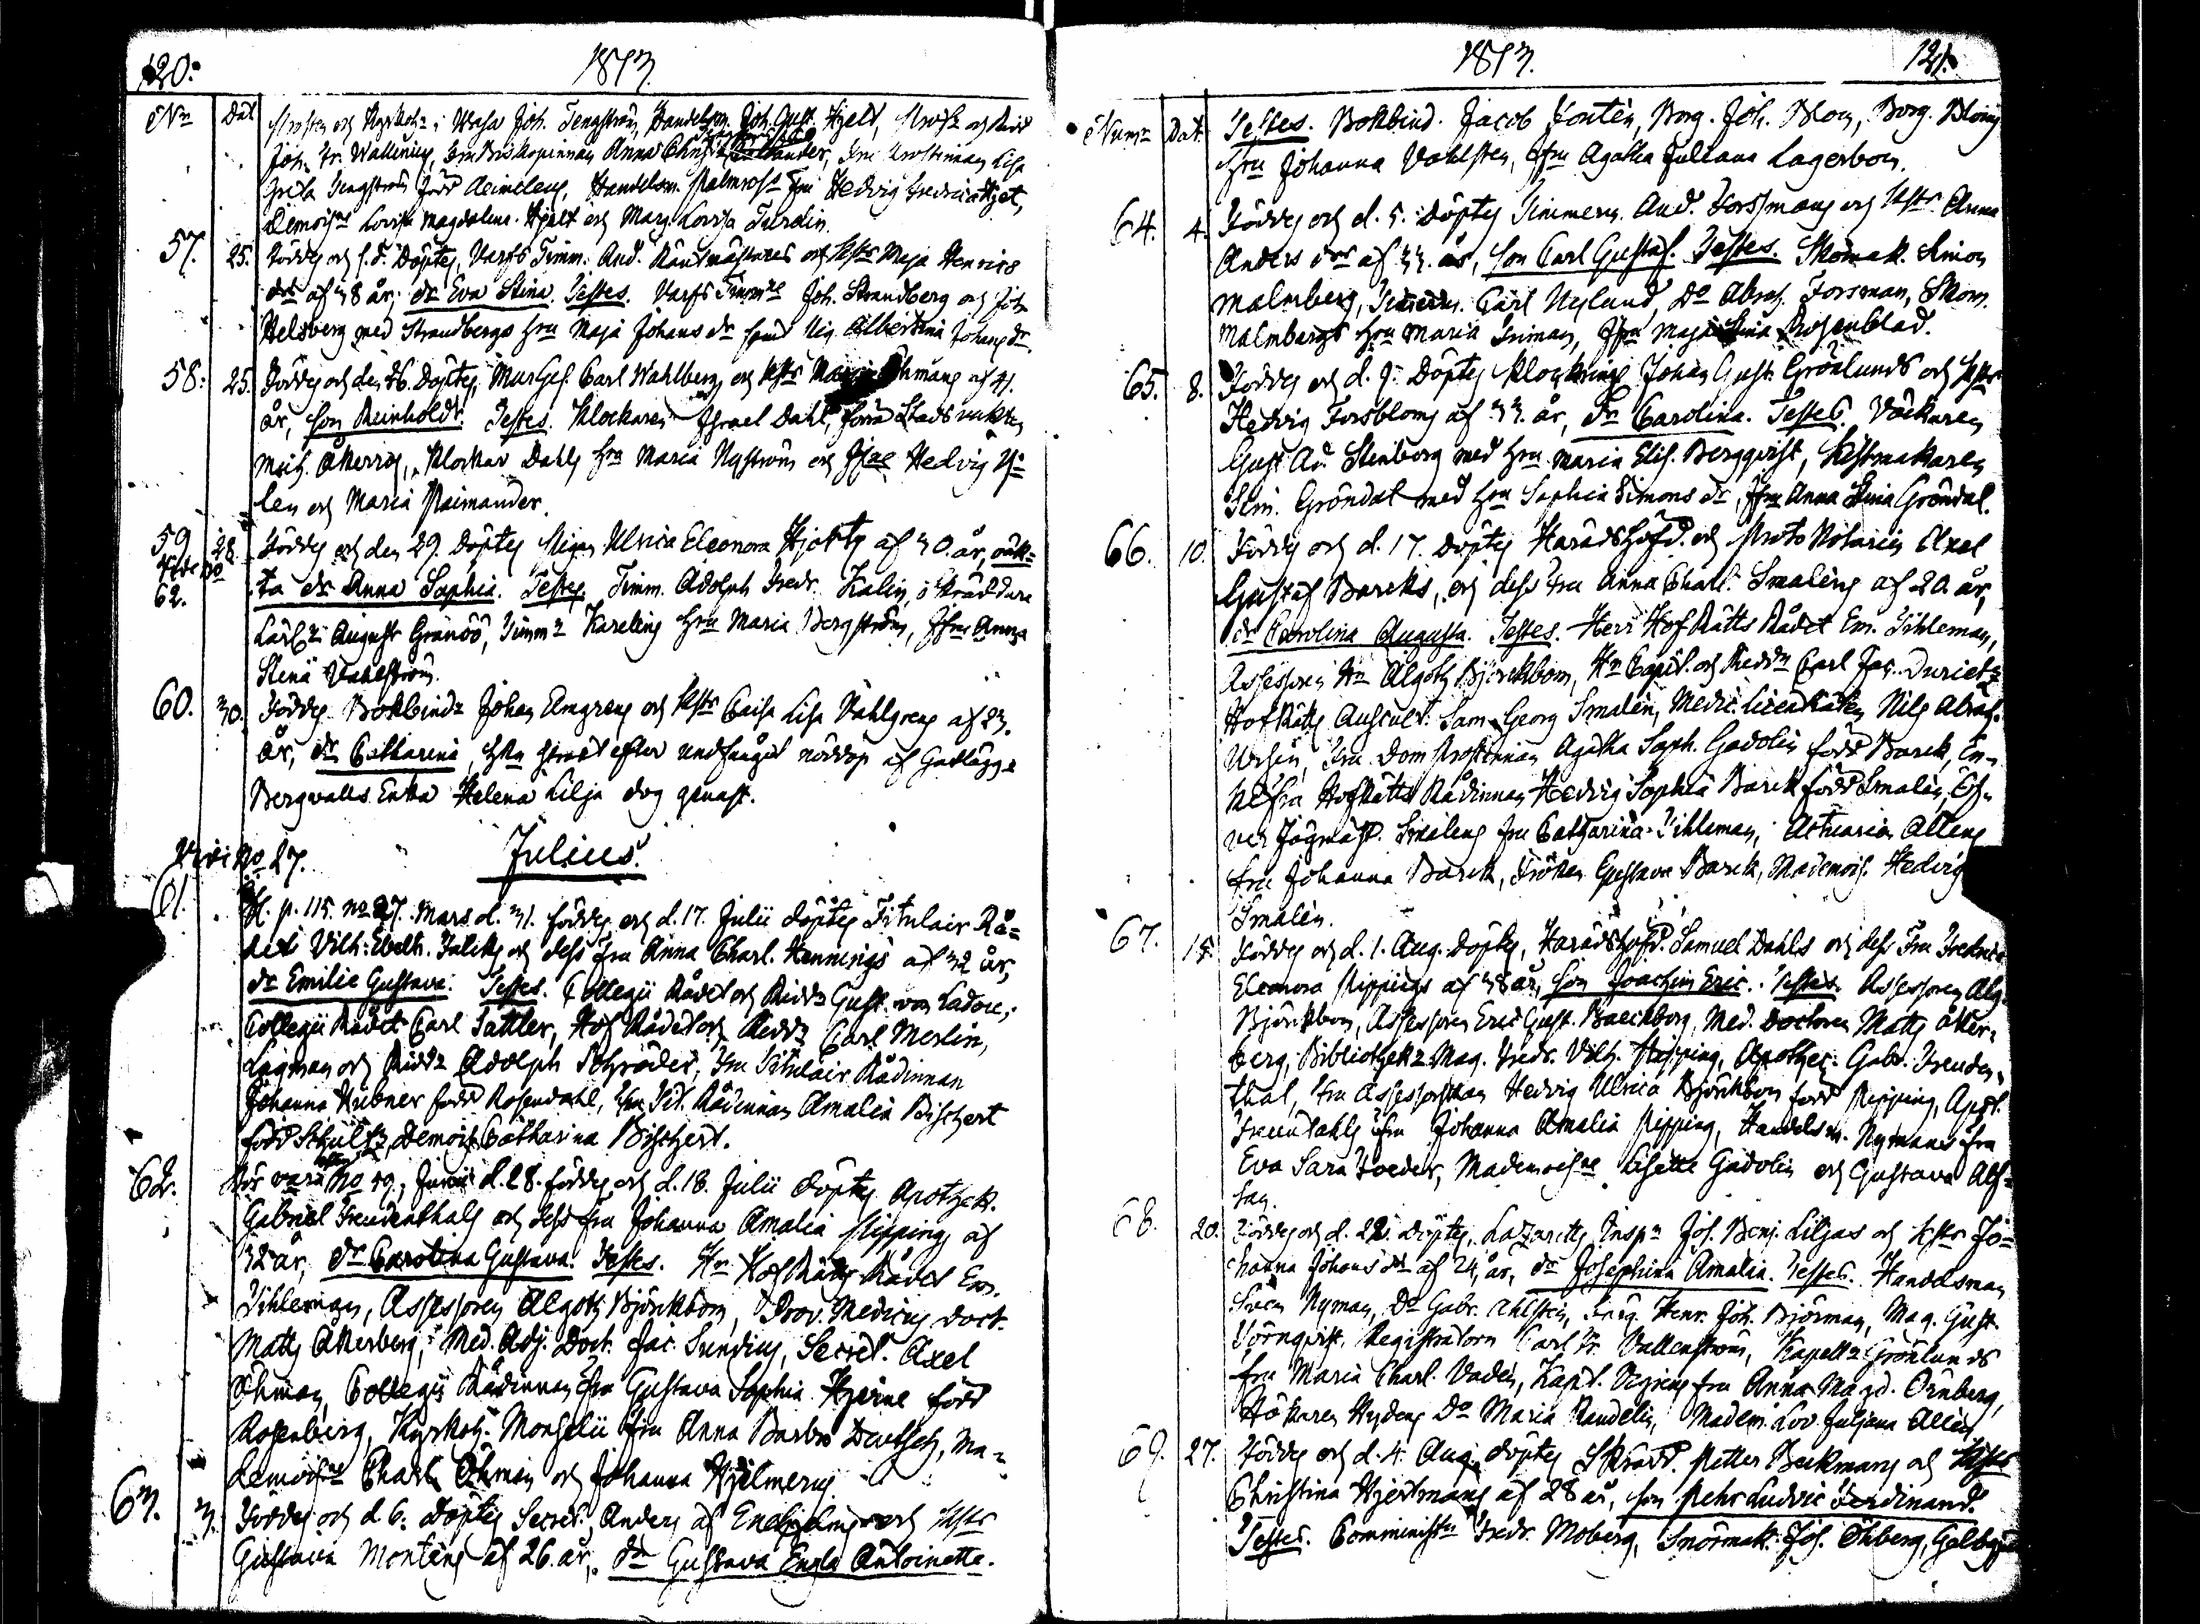 120.
1813.
No
Dat
Prosten och Kyrkoh. i Wasa Joh. Tengström, Handelsm. Joh. Gust. Hjelt, Prost och Ridd
Joh. Fr. Wallenius, Anna
Greta Tengström född Handelsm. Malmros Fru Hedvig
Lovisa Magdalena Hjelt och Marg. Lovisa Turdin.
57. 25. Föddes och s. d. Döptes, Varfs Timm. And. Råntmästares och Hstr Maja Henrics
dr af 38 år, dr Eva Stina. Testes. Varfs Timm Joh. Strandberg och Joh
Helsberg med Strandbergs Hru Maja Johans dr samt Albertina Johans dr
58. 25. Föddes och den 26. Döptes, Carl Wahlberg och Hstr Öhmans af 41.
år, son Reinhold. Testes. Klockaren Israel Dahl, förra Stads
Mich. Åkerros, Klockar Dahls Hru Maria Nyström och Jfrne Hedvig
len och Maria Paimander.
59 28. Föddes och den 29. Döptes Ulrica Eleonora Hjorts af 30. år, oäk-
62.
ta dr Anna Sophia. Testes. Timm. Adolph Fredr. Kalin, Skräddare
Lärl. August Granöö, Timm Karelins Hru Maria Bergström, Jfru Anna
Stina Vahlström.
60. 30. Föddes Bokbind. Johan Amgrens och Hstr Caisa Lisa Vahlgrens af 23.
år, dr Catharina, som straxt efter undfånget nöddop af Gatlägg.
Bergwalls Enka Helena Lilja dog genast.
Julius.
No 27.
61. p. 115. no 27. Mars d. 31. föddes och d. 17. Julii döptes Titulair Rå-
det Vilh. och dess Fru Anna Charl. Hennings af 32 år,
dr Emilie Gustava. Testes. Collegii Rådet och Ridd Gust. von Ladou,
Collegii Rådet Carl Sattler, Hof Rådet och Ridd Carl Merlin,
Lagman och Ridd Adolph Schröder, Fru Titulair Rådinnan
Johanna Hübner född Rosendahl, Fru Tit. Rådinnan Amalia Bistzert
född Schultz, Demois Catharina Bistzert.
62. Bör vara No 59, Junii d. 28. föddes och d. 18. Julii döptes Apothek.
Gabriel Freudenthals och dess fru Johanna Amalia Pippings af
32 år, dr Carolina Gustava. Testes. Hr HofRätts Rådet Em.
Tihleman, Assessoren Algoth Björkbom, Prov. Medicus Doct.
Matts Åkerberg, Med. Adj. Doct. Jac. Sundius, Secret. Axel
Öhman, Collegii Rådinnan fru Gustava Sophia Hjerne född
Rosenberg, Kyrkoh. Monselii fru Anna Barbro Deutsch, Ma-
demois Charl. Öhman och Johanna Hjelmerus.
63. 3. Föddes och d 6. Döptes Secret. Anders af och Hstr
Gustava Montens af 26. år, dr Gustava Engla Antoinette.
1813.
121.
Num
Dat
Testes. Bokbind. Jacob Fontén, Borg. Joh. Blom, Borg. Bloms
Hru Johanna Vahlsten, Jfru Agatha Juliana Lagerbom.
64. 4. Föddes och d. 5. Döptes Timmerm. And. Forssmans och Hstr Anna
Anders drs af 33. år, son Carl Gustaf. Testes. Skomak. Simon
Malmberg, Timmerm. Carl Nylund, Do Abrah. Forsman, Skom.
Malmbergs Hru Maria Iriman, Jfru Maja Stina Rosenblad.
65. 8. Föddes och d. 9. Döptes Klockrings Johan Gust. Grönlunds och Hstr
Hedvig Forsbloms af 33. år, dr Carolina. Testes. Väckaren
Gust. Ad. Stenborg med Hru Maria Elis. Bergqvist, Kistmakaren
Sim. Gröndal med Hru Sophia Simons dr, Jfru Anna Stina Gröndal.
66. 10. Föddes och d. 17. döptes Häradshöfd. och Proto Notarien Axel
Gustaf Barcks, och dess Fru Anna Charl. Smaléns af 20. år,
dr Carolina Augusta. Testes. Herr Hof Rätts Rådet Em. Tihleman,
Assessoren Hr Algoth Björckbom, Hr Capit. och Riddr Carl Jac. Durietz
Hof Rätts Auscult. Sam. Georg Smalén, Medic. Licentiaten Nils Abrah.
Ursin, Fru Dom Prostinnan Agatha Soph. Gadolin född Barck, En-
kefru HofRätts Rådinnan Hedvig Sophia Barck född Smalén, Öf-
ver Jägmäst. Smaléns fru Catharina Tihleman, Actuarien Alléns
fru Johanna Barck, Fröken Gustava Barck, Mademois. Hedvig
Smalén.
67. 15. Föddes och d. 1. Aug. döptes, Häradshöfd. Samuel Dahls och dess Fru Fredrica
Eleonora Pippings af 38 år, son Joachim Eric. Testes. Assessoren Alg.
Björkbom, Assessoren Eric Gust. Baeckborg, Med. Doctoren Matts Åker-
berg, Bibliothek. Mag. Fredr. Vilh. Pipping, Apothec. Gabr. Freuden-
thal, Fru Assessorskan Hedvig Ulrica Björkbom född Pipping, Apot.
Freudenthals fru Johanna Amalia Pipping, Handelsm. Nymans fru
Eva Sara Foeder, Mademoisne Lisette Gadolin och Gustava Alf-
tan.
68. 20. Föddes och d. 22. Döptes, Lazaretts Insp. Joh. Benj. Liljas och Hstr Jo-
hanna Johans dr af 24. år, dr Josephina Amalia. Testes. Handelsman
Sven Nyman, Do Gabr. Ahlsten, Henr. Joh. Björman, Mag. Gust.
Törnqvist, Registratorn Carl Fr. Vallenström, Kapell. Grönlunds
fru Maria Charl. Vadén, Kapit. fru Anna Magd. Örnberg,
Hökaren Nydens Do Maria Randelin, Madem. Lov. Juliana Allén
69. 27. Föddes och d. 4. Aug. döptes Skrädd. Petter Beckmans och Hstr
Christina Hjertmans af 28 år, son Pehr Ludvic Ferdinand.
Testes. Comminist Fredr. Moberg, Snörmak. Joh. Öhberg,